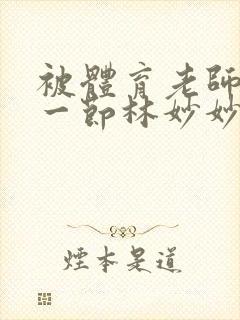 被體育老師
一節林妙妙
煙本是道